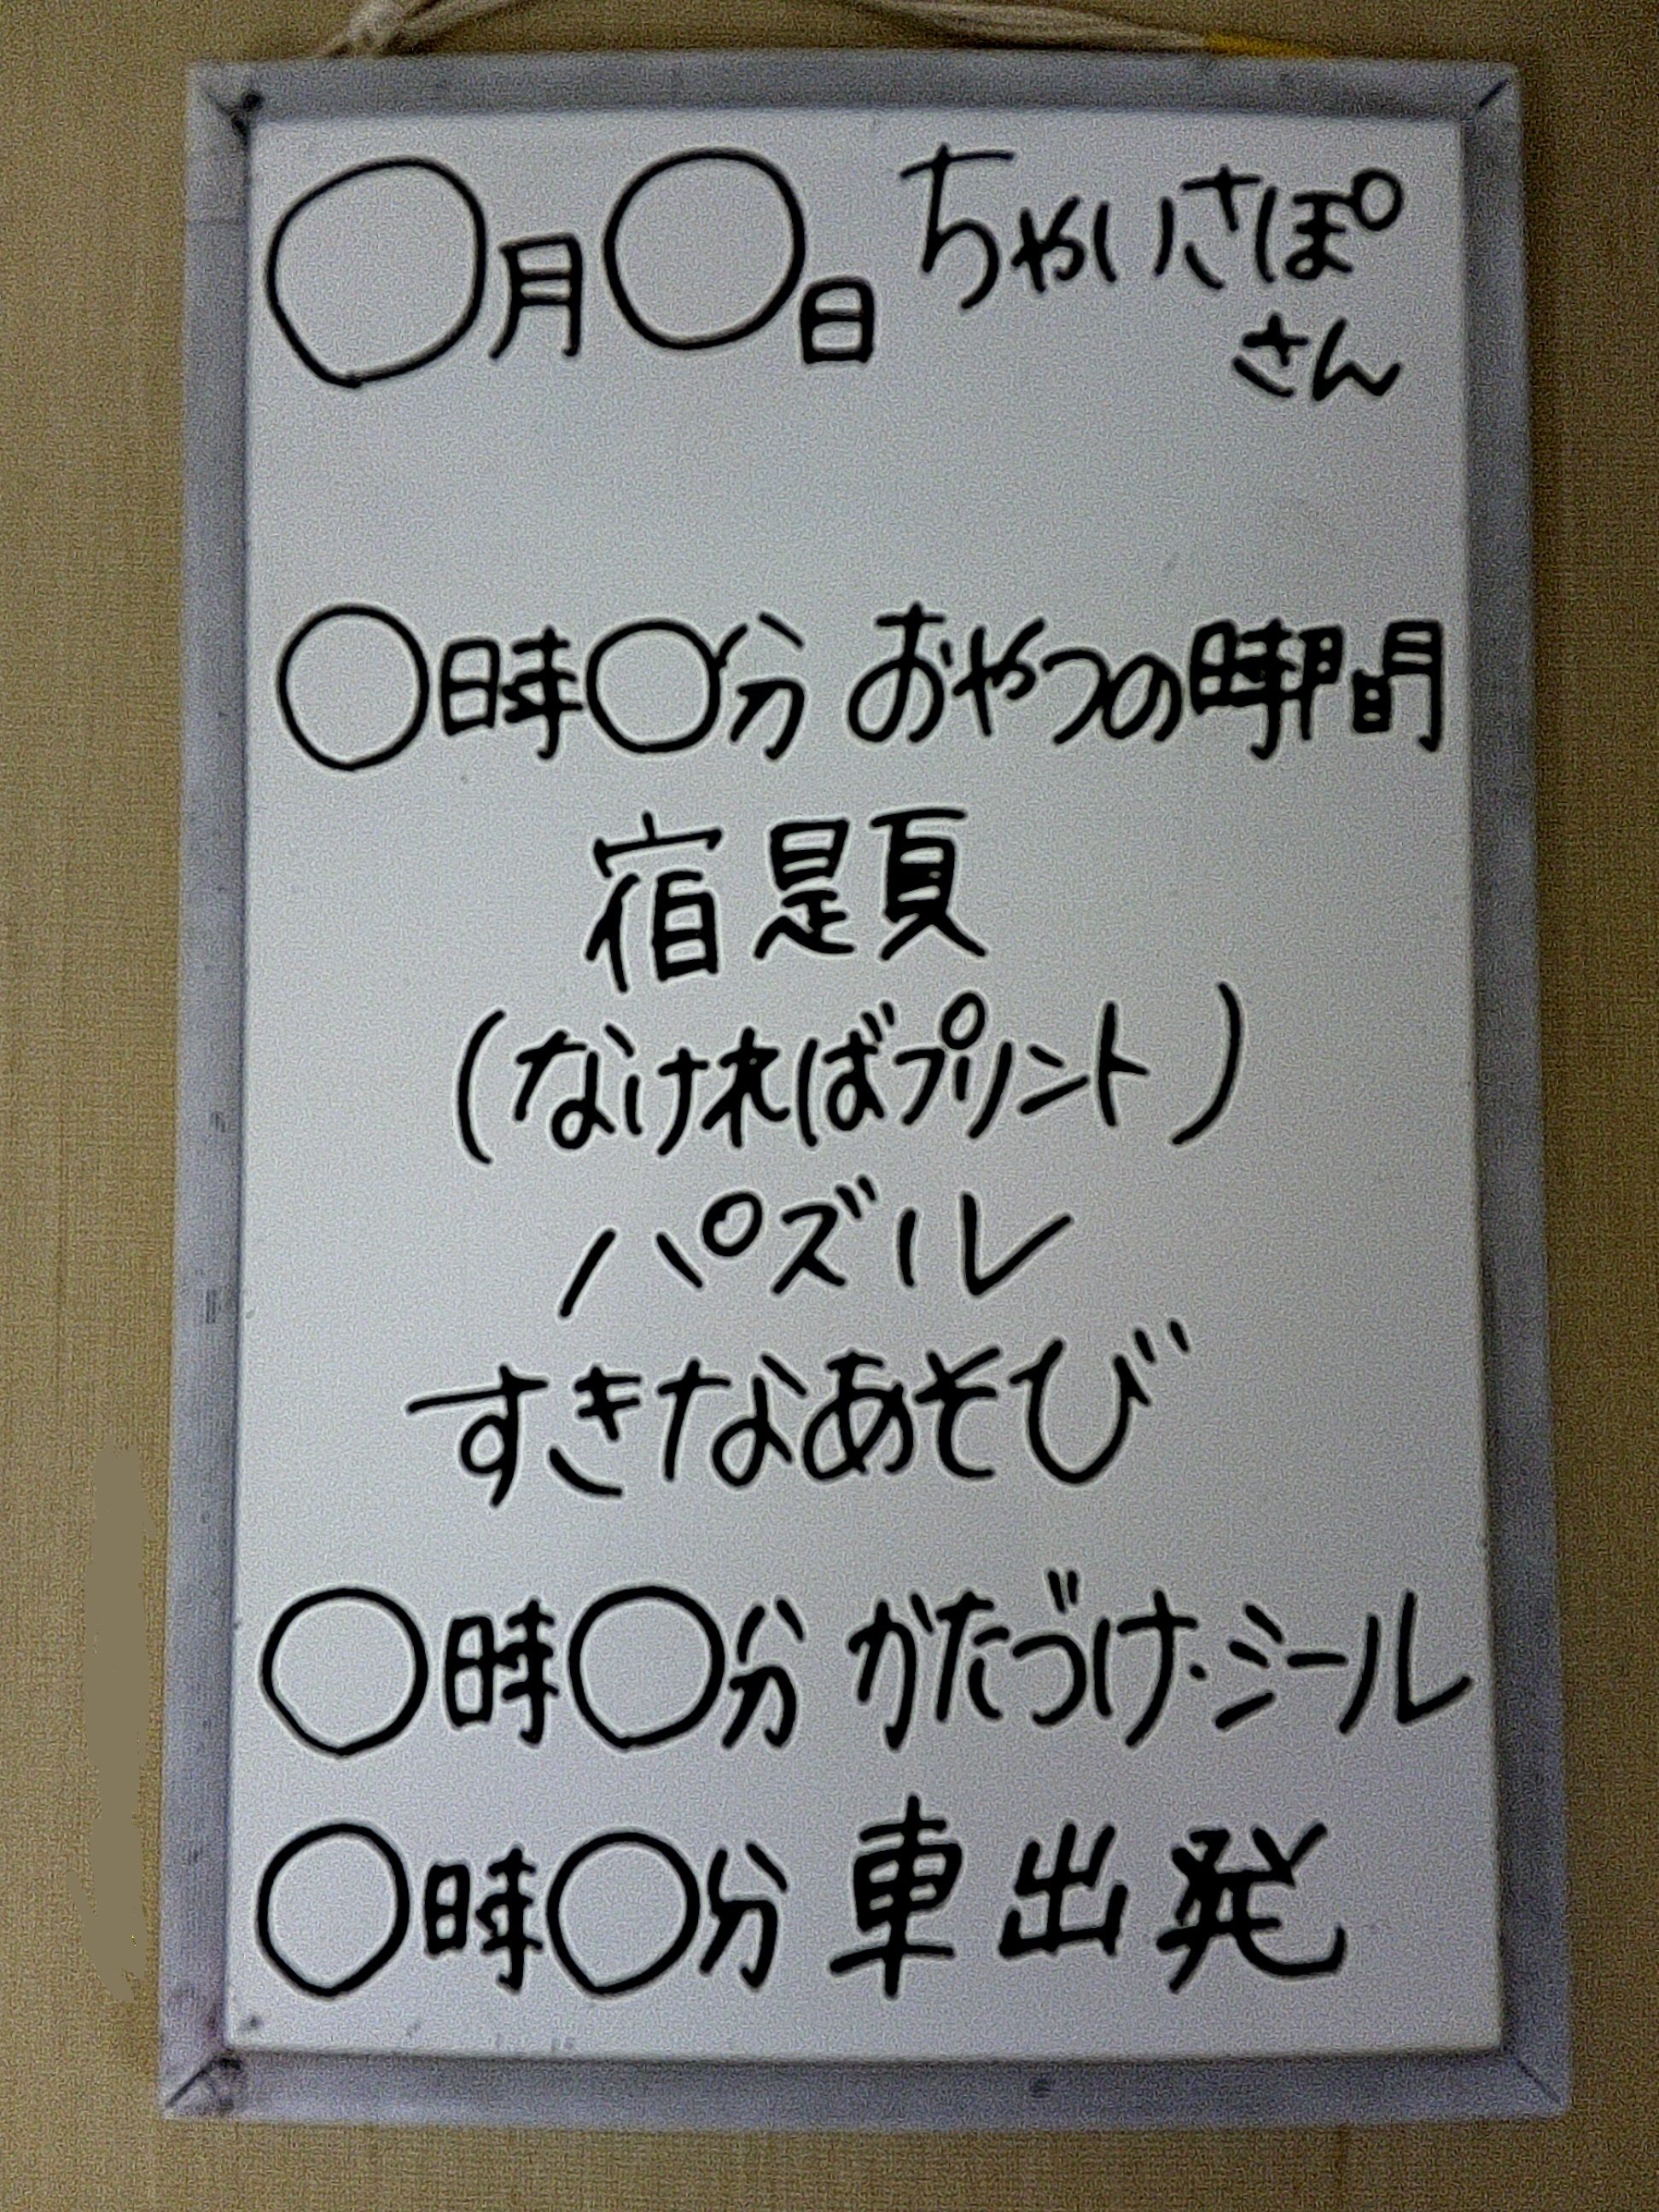 〇月〇日 ちゃいさぽ
さん
〇時〇分 おやつの時間
宿題
(なければプリント)
パズル
すきなあそび
〇時〇分 かたづけ・シール
〇時〇分 車出発